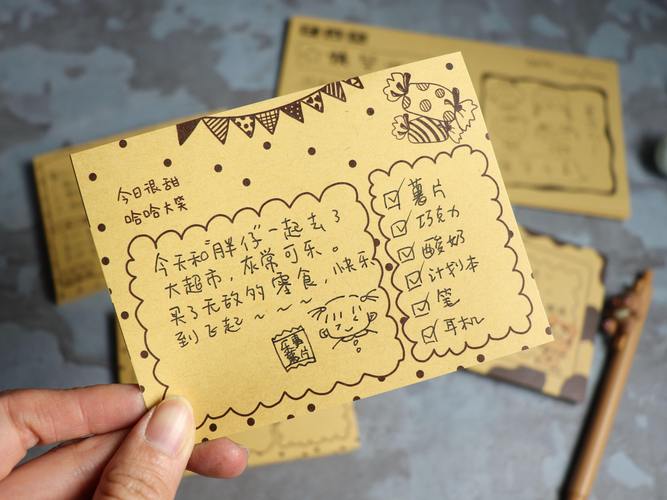 今日很甜
哈哈大笑
今天和"胖仔"一起去了
大超市，灰常可乐。
买了无敌的零食，快乐
到飞起~~~~
乐事
薯片
薯片
巧克力
酸奶
计划本
笔
耳机